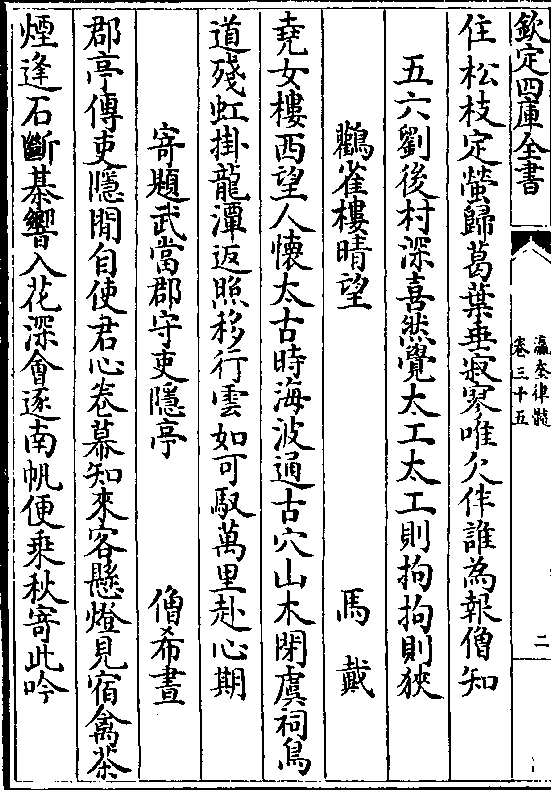 欽定四庫全書
瀛奎律髓
卷三十五
二
住松枝定螢歸葛葉垂寂寥唯欠伴誰為報僧知
五六劉後村深喜然覺太工太工則拘拘則狹
鸛雀樓晴望　馬戴
堯女樓西望人懷太古時海波通古穴山木閉虞祠鳥
道殘虹掛龍潭返照移行雲如可馭萬里赴心期
寄題武當郡守吏隱亭　僧希晝
郡亭傳吏隱閒自使君心卷幕知來客懸燈見宿禽茶
煙逢石斷棊響入花深會逐南帆便乗秋寄此吟